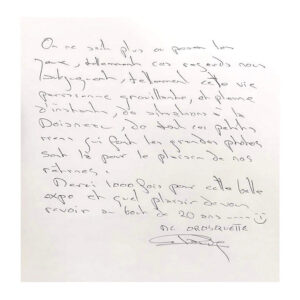 On ne sait plus où poser les
yeux, tellement ces regards nous
subjuguent, tellement cette vie
parisienne grouillante, et pleine
d'instants, de situations à la
Doisneau, de tous ces petits
riens qui font les grandes photos
sont là pour le plaisir de nos
rétines !
Merci 1000 fois pour cette belle
expo et quel plaisir de vous
revoir au bout de 20 ans ----- :)